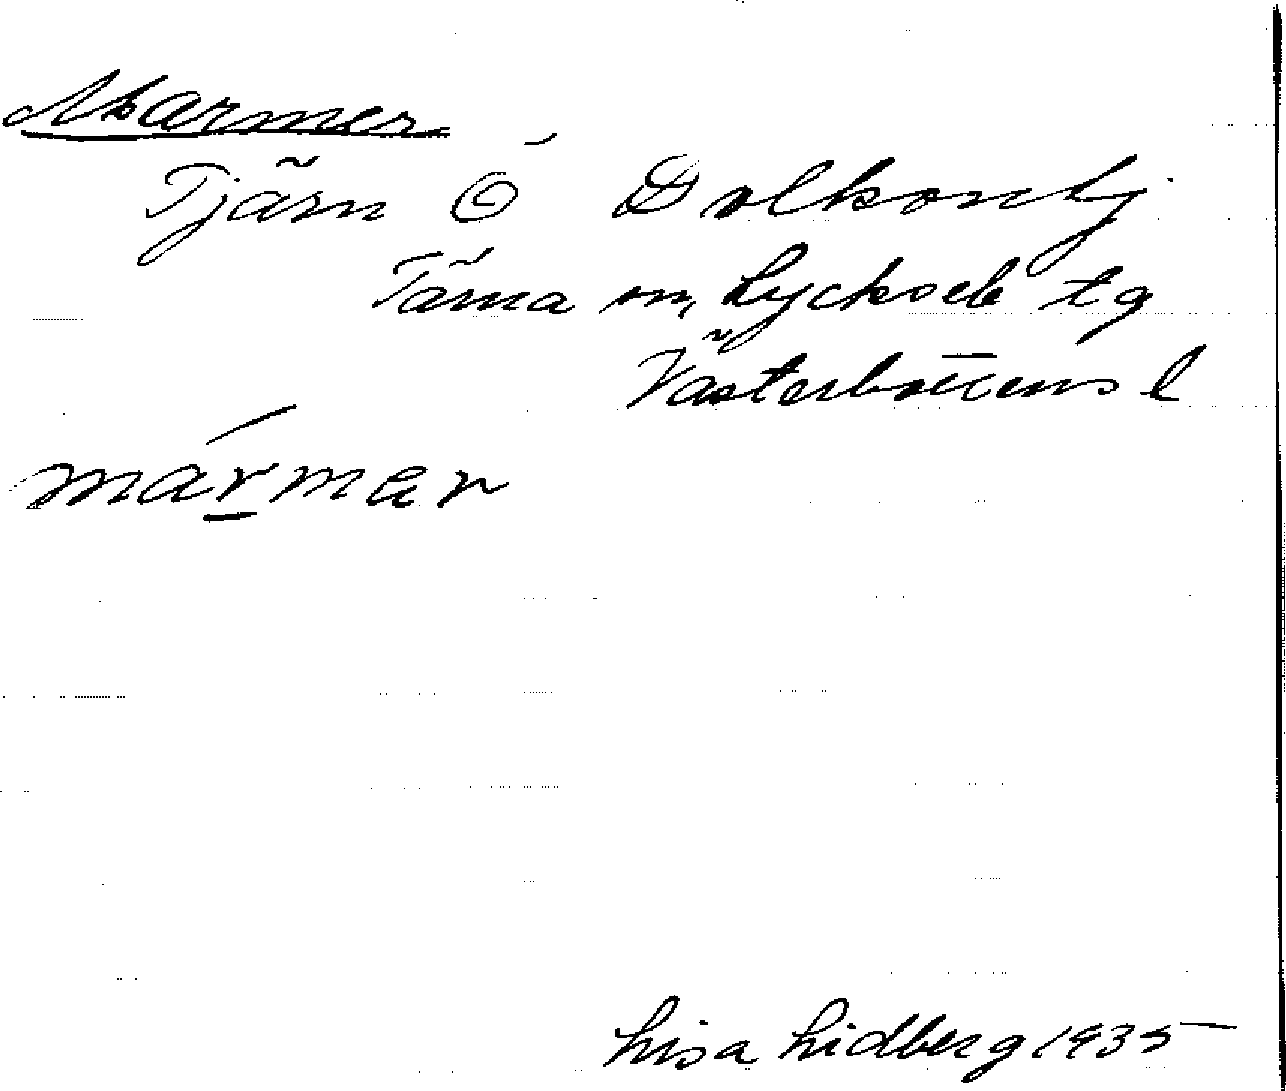 Marmer
Tjärn Ö Volkonbj
Tärna sn, Lycksele tg
Västerbottens l
mármar
Lisa Lidberg 1935